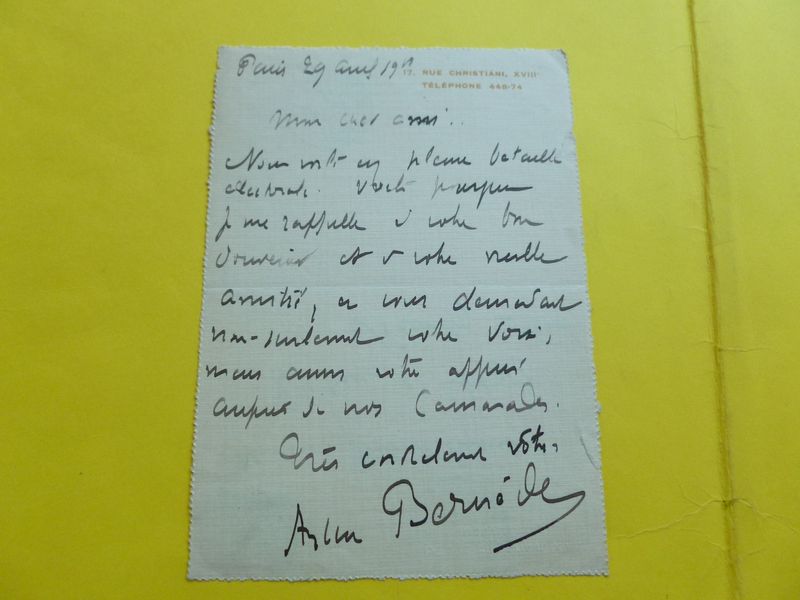 Paris 29 avril 19
17, RUE CHRISTIANI, XVIIIᵉ
TÉLÉPHONE 448-74
Mon cher ami..
Nous voilà en pleine bataille
électorale. Voilà pourquoi
je me rappelle à votre bon
souvenir et à votre vieille
amitié, en vous demandant
non-seulement votre voix,
mais aussi votre appui
auprès de nos Camarades.
Très cordialement vôtre.
Arthur Bernède